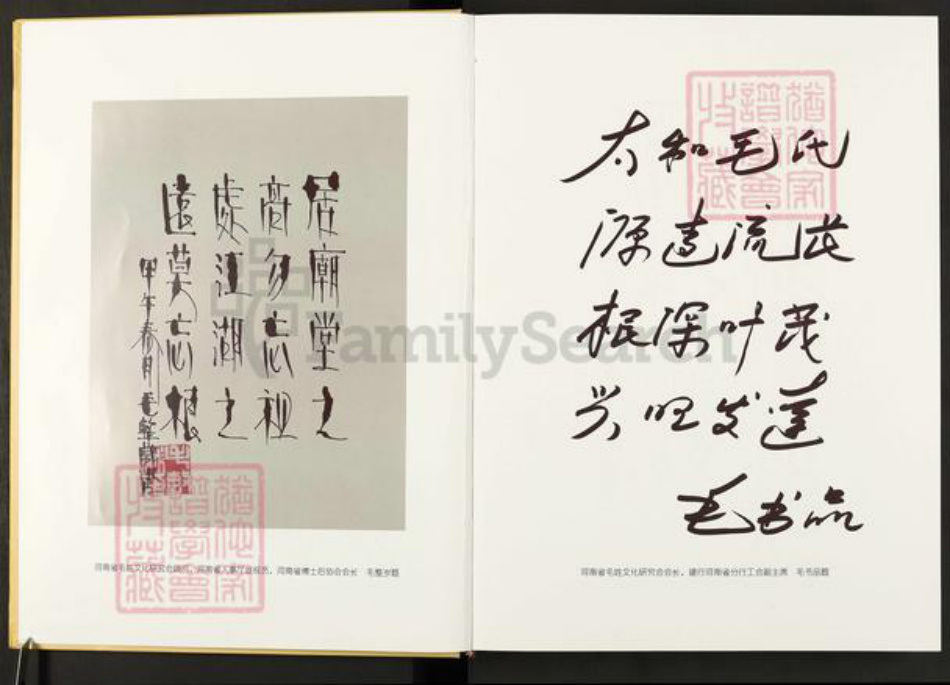 居廟堂之
高勿忘祖
處江湖之
遠莫忘根
甲午春月
河南省毛姓文化研究会顾问，河南省人事厅巡视员，河南省博士后协会会长 毛整岁题
太和毛氏
源远流长
根深叶茂
兴旺发达
毛书品
河南省毛姓文化研究会会长，建行河南省分行工会副主席 毛书品题
猶他家
譜學會
收藏
FamilySearch